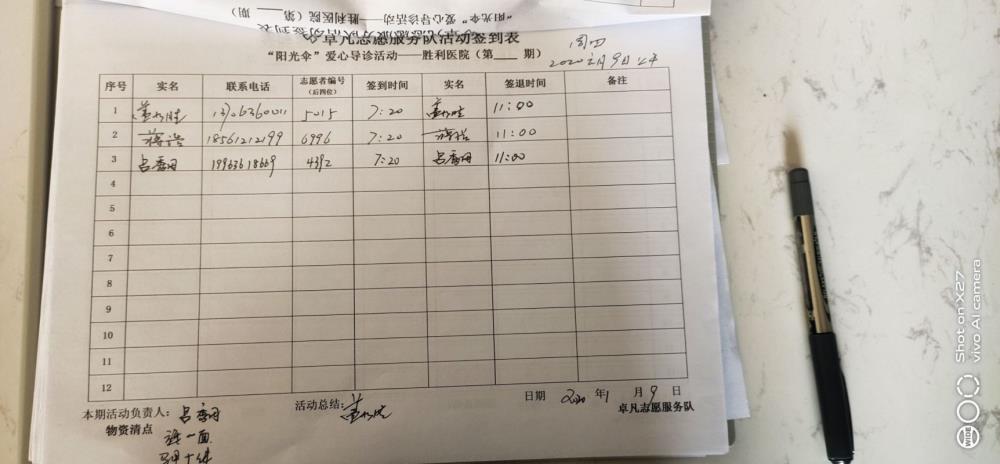 "阳光伞"爱心导诊活动——胜利医院(第 期)
卓凡志愿服务队活动签到表
"阳光伞"爱心导诊活动——胜利医院(第 期) 周四
序号 实名 联系电话 志愿者编号(后四位) 签到时间 实名 签退时间 备注
1 13706360011 5015 7:20 11:00
2 蒋浩 18561212199 6996 7:20 蒋浩 11:00
3 吕秀丹 19963618669 4392 7:20 吕秀丹 11:00
4
5
6
7
8
9
10
11
12
本期活动负责人:吕秀丹 活动总结: 日期 2020年1月9日
物资清点 卓凡志愿服务队
旗一面
Shot on X27
vivo AI camera